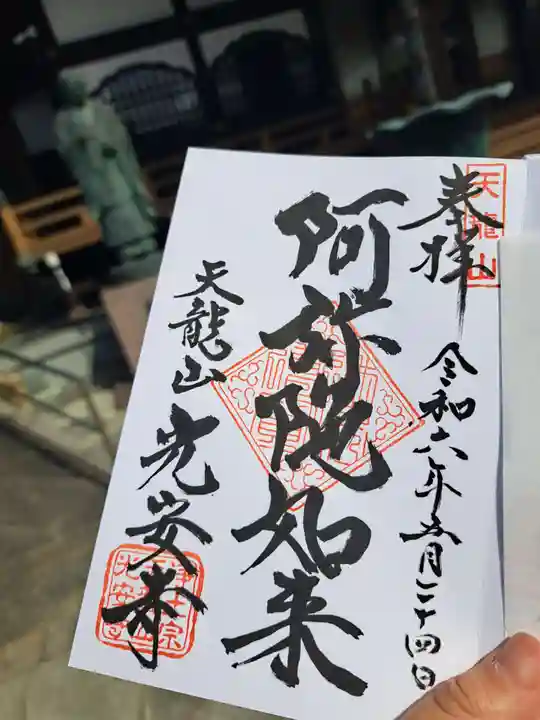 奉拝
天龍山
令和六年五月二十四日
阿弥陀如来
天龍山 光安寺